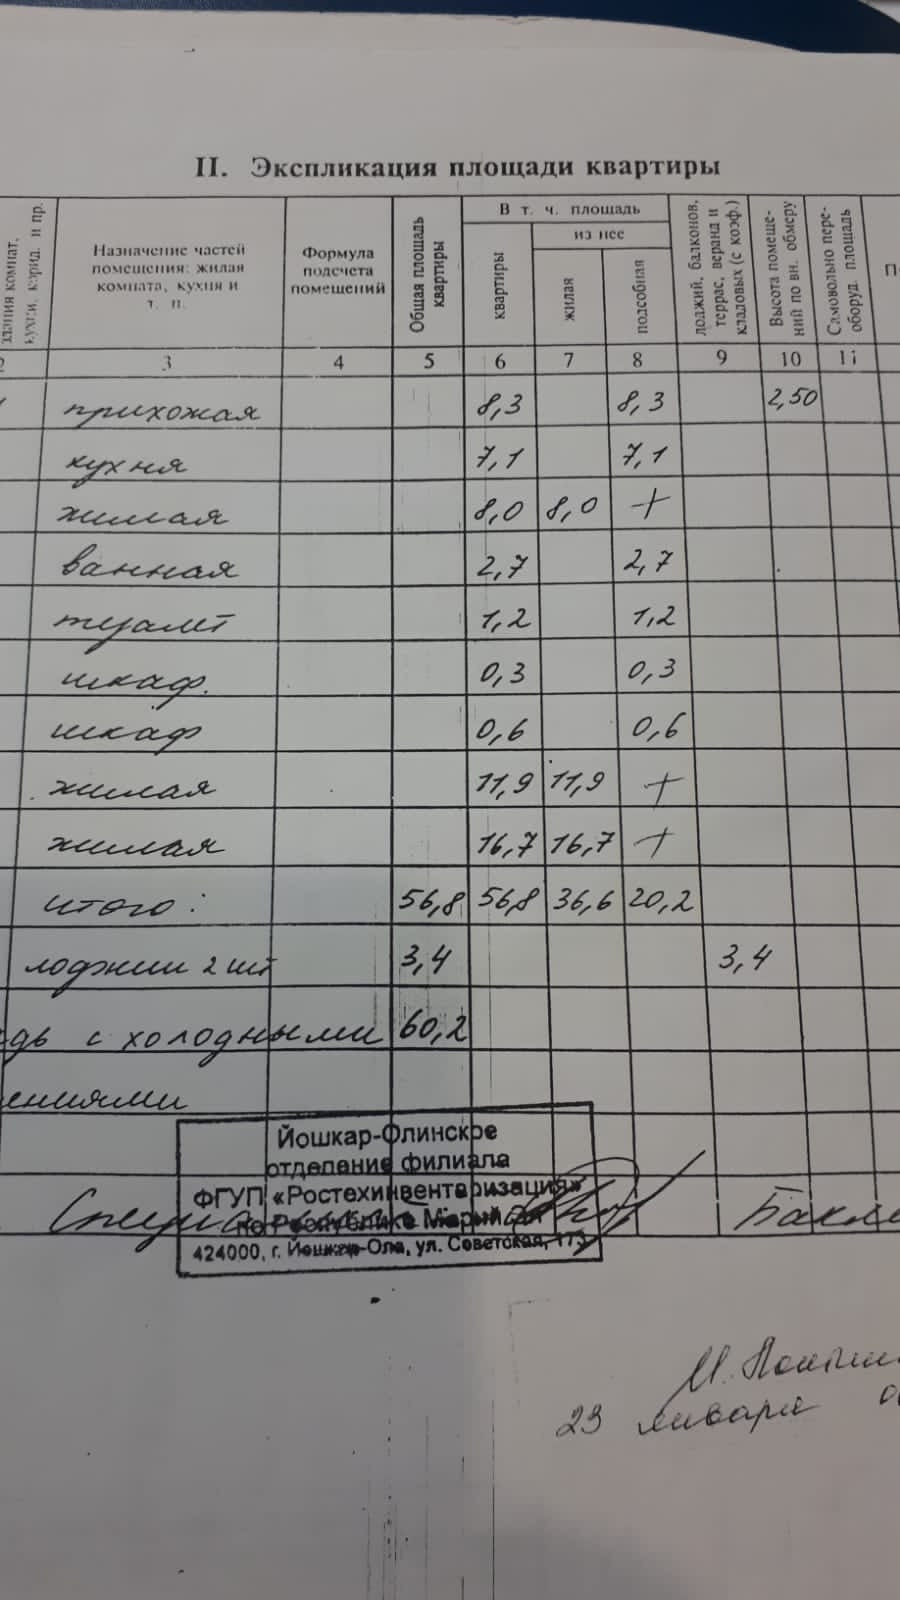 II. Экспликация площади квартиры
кухни, корид. и пр.
Назначение частей помещения: жилая комната, кухня и т. п.
Формула подсчета помещений
Общая площадь квартиры
В т. ч. площадь
из нее
квартиры
жилая
подсобная
лоджий, балконов, террас, веранд и кладовых (с коэф.)
Высота помещений по вн. обмеру
Самовольно переоборуд. площадь
3 4 5 6 7 8 9 10 11
прихожая 8,3 8,3 2,50
кухня 7,1 7,1
жилая 8,0 8,0 +
ванная 2,7 2,7
туалет 1,2 1,2
шкаф. 0,3 0,3
шкаф 0,6 0,6
жилая 11,9 11,9 +
жилая 16,7 16,7 +
итого: 56,8 56,8 36,6 20,2
лоджии 2 шт 3,4 3,4
с холодными 60,2
Йошкар-Олинское
отделение филиала
ФГУП «Ростехинвентаризация»
по Республике Марий Эл
424000, г. Йошкар-Ола, ул. Советская, 173
23 января